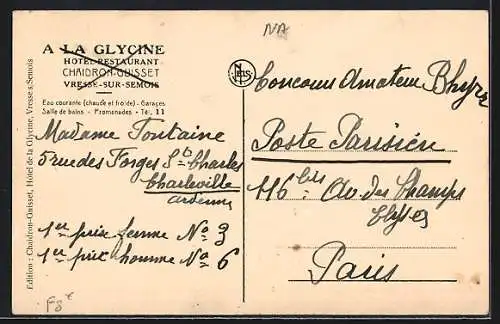 NA
A LA GLYCINE
HOTEL-RESTAURANT
CHAIDRON-GUISSET
VRESSE-SUR-SEMOIS
Eau courante (chaude et froide) - Garages
Salle de bains - Promenades - Tél. 11
Madame Fontaine
5 rue des Forges St Charles
Charleville
Ardennes
1er prix femme No 3
1er prix homme No 6
F3 €
Edition : Chaidron-Guisset, Hôtel de la Glycine, Vresse s/Semois
Concours Amateur
Poste Parisien
116 bis Av des Champs
Elysées
Paris